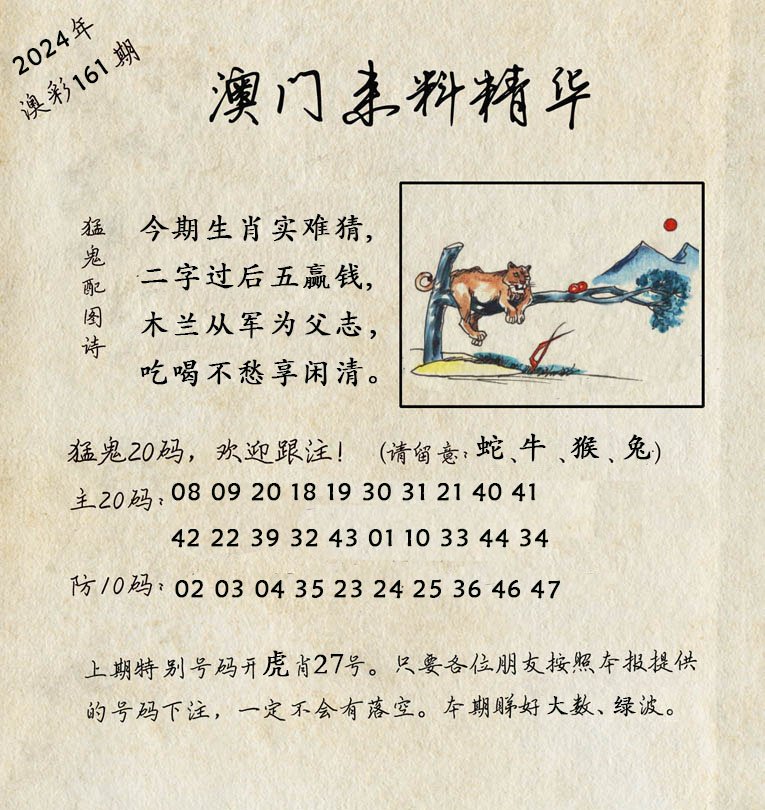 2024年
澳彩161期
澳门来料精华
猛鬼配图诗
今期生肖实难猜，
二字过后五赢钱，
木兰从军为父志，
吃喝不愁享闲清。
猛鬼20码，欢迎跟注！（请留意：蛇、牛、猴、兔）
主20码：08 09 20 18 19 30 31 21 40 41
42 22 39 32 43 01 10 33 44 34
防10码：02 03 04 35 23 24 25 36 46 47
上期特别号码开虎肖27号。只要各位朋友按照本报提供
的号码下注，一定不会有落空。本期睇好大数、绿波。